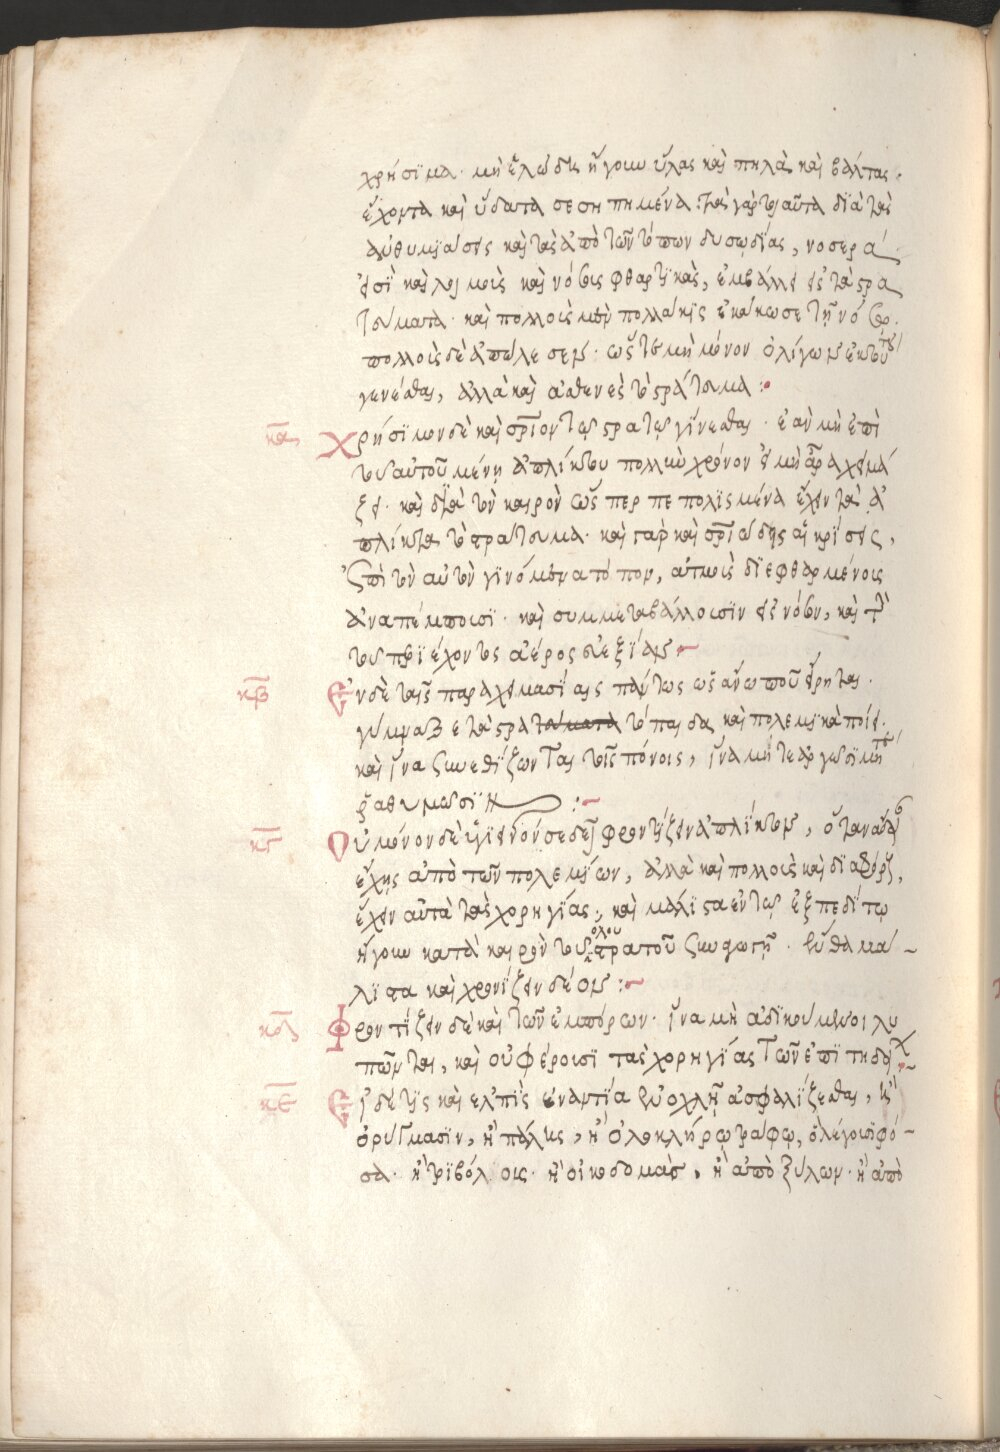 χρήσϊμα· μὴ ἑλώδεις ἤγουν ὕλας καὶ πηλὰ καὶ βάλτας·
ἔχοντα καὶ ὕδατα σεσηπημένα· τὰ γὰρ τοιαῦτα διὰ τὰς
ἀναθυμιάσεις καὶ τὰς ἀπὸ τῶν τόπων δυσωδίας, νοσερά
εἰσὶ καὶ λοιμοὺς καὶ νόσους φθαρτικὰς, ἐμβάλλει εἰς τὰ στρα
τεύματα· καὶ πολλοὺς μὲν πολλάκις ἐκάκωσε τῇ νόσῳ·
πολλοὺς δὲ ἀπώλεσεν· ὥστε μὴ μόνον ὀλίγων ἐκ τούτου
γενέσθαι, ἀλλὰ καὶ ἀσθενὲς τὸ στράτευμα :
κα Χρήσϊμον δὲ καὶ συμφέροντως στρατῷ γίνεσθαι· ἐὰν μὴ ἐπὶ
τοῦ αὐτοῦ μένῃ ἀπλίκτου πολλὺν χρόνον εἰ μὴ ἄρα χειμά
ζει· καὶ διὰ τὸν καιρὸν ὥσπερ πεπολισμένα ἔχειν τὰ ἀ
πλίκτα τὸ στράτευμα· καὶ γὰρ καὶ αἱ ἐκκρίσεις,
ἐπὶ τὸν αὐτὸν γινόμεναι τόπον, ἀτμοὺς διεφθαρμένους
ἀναπέμπουσϊ· καὶ συμμεταβάλλουσϊν εἰς νόσον, καὶ τὴν
τοῦ περιέχοντος ἀέρος δεξίαν
κβ Ἐν δὲ ταῖς παραχειμασίαις πάντως ὡς ἄνω που εἴρηται·
γύμναζε τὰ στρατεύματα τόπασδα καὶ πολεμικὰ ποίει·
καὶ ἵνα συνεθίζωνται τοῖς πόνοις, ἵνα μήτε ἀργῶσϊ μήτε
ῥαθυμῶσϊν :
κγ Οὐ μόνον δὲ ὑγιεινόν σε δεῖ φροντίζειν ἀπλίκτων, ὅταν ἄδειαν
ἔχῃς ἀπὸ τῶν πολεμίων, ἀλλὰ καὶ πολλοὺς καὶ διαφόρους,
ἔχειν αὐτὰ τὰς χορηγίας· καὶ μάλιστα ἐν τῷ ἐξπεδίτῳ
ἤγουν κατὰ καιρὸν τοῦ ὅλου στρατοῦ συναγωγῇ· ἔνθα μά–
λϊστα καὶ χρονίζειν δέον :
κδ Φροντίζειν δὲ καὶ τῶν ἐμπόρων· ἵνα μὴ ἀδϊκούμενοι λυ
πῶνται, καὶ οὐ φέρουσϊ τὰς χορηγίας τῶν ἐπιτηδείων
κε Εἰ δέ τις καὶ ἐλπὶς ἐναντία ἐνοχλῇ ἀσφαλίζεσθαι, ἢ
ὀρύγμασϊν, ἢ πάλοις, ἢ ὁλοκλήρῳ τάφῳ, ὃ λέγουσϊ φό–
σσα· ἢ τριβόλοις· ἢ οἰκοδομὰς, ἢ ἀπὸ ξύλων· ἢ ἀπὸ